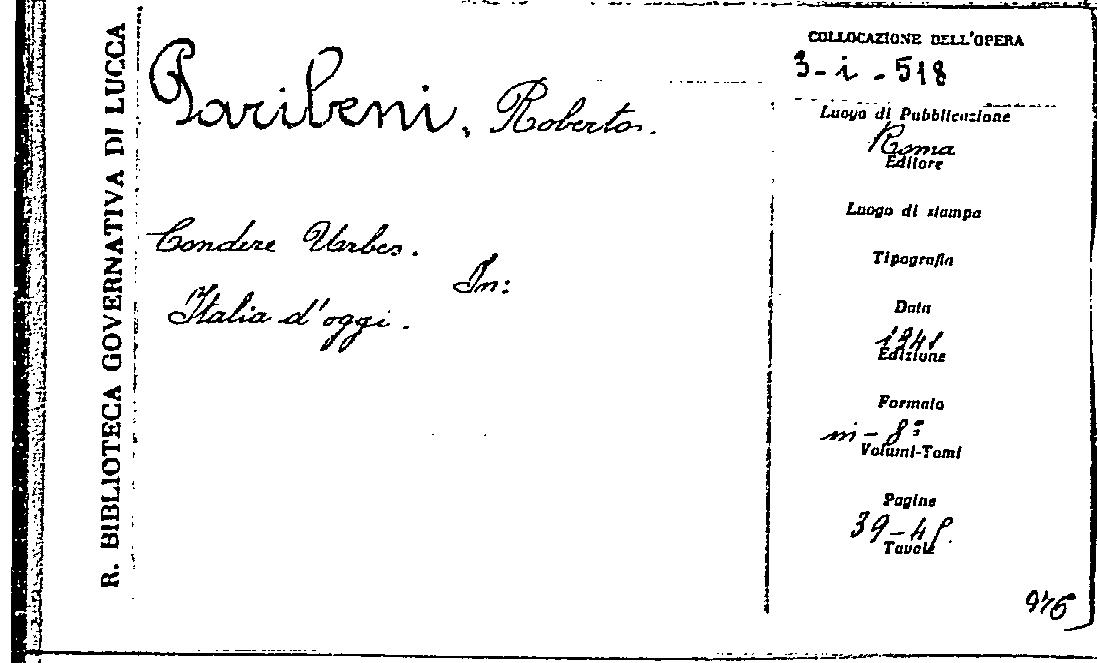 R. BIBLIOTECA GOVERNATIVA DI LUCCA
Paribeni, Roberto.
Condere Urbes.
In:
Italia d'oggi.
COLLOCAZIONE DELL'OPERA
3-i-518
Luogo di Pubblicazione
Roma
Editore
Luogo di stampa
Tipografia
Data
1941
Edizione
Formato
in-8º
Volumi-Tomi
Pagine
39-45.
Tavole